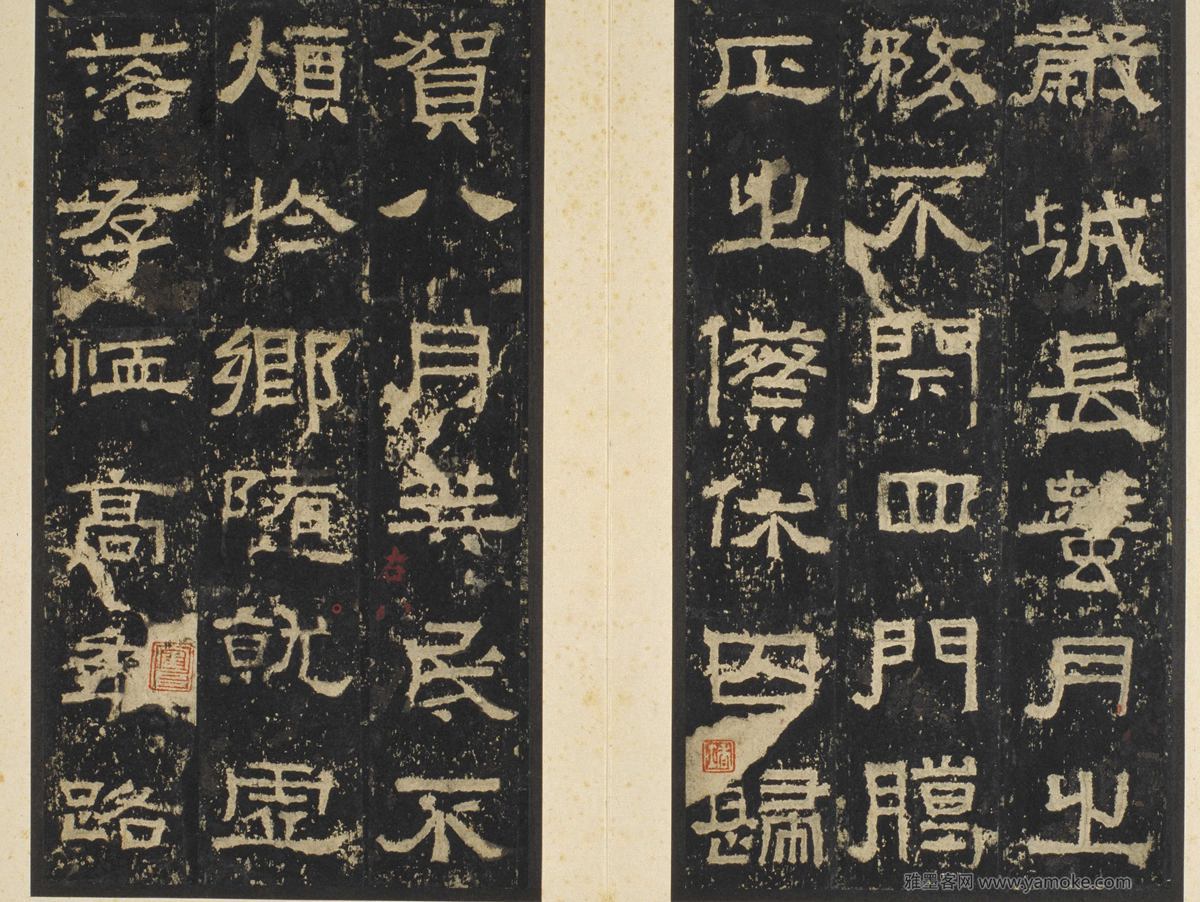 穀城長蠶月之
務不閉四門臘
正之僚休囚歸
賀八月筭民不
煩於鄉隨就虛
落存恤高年路
雅墨客网 www.yamoke.com